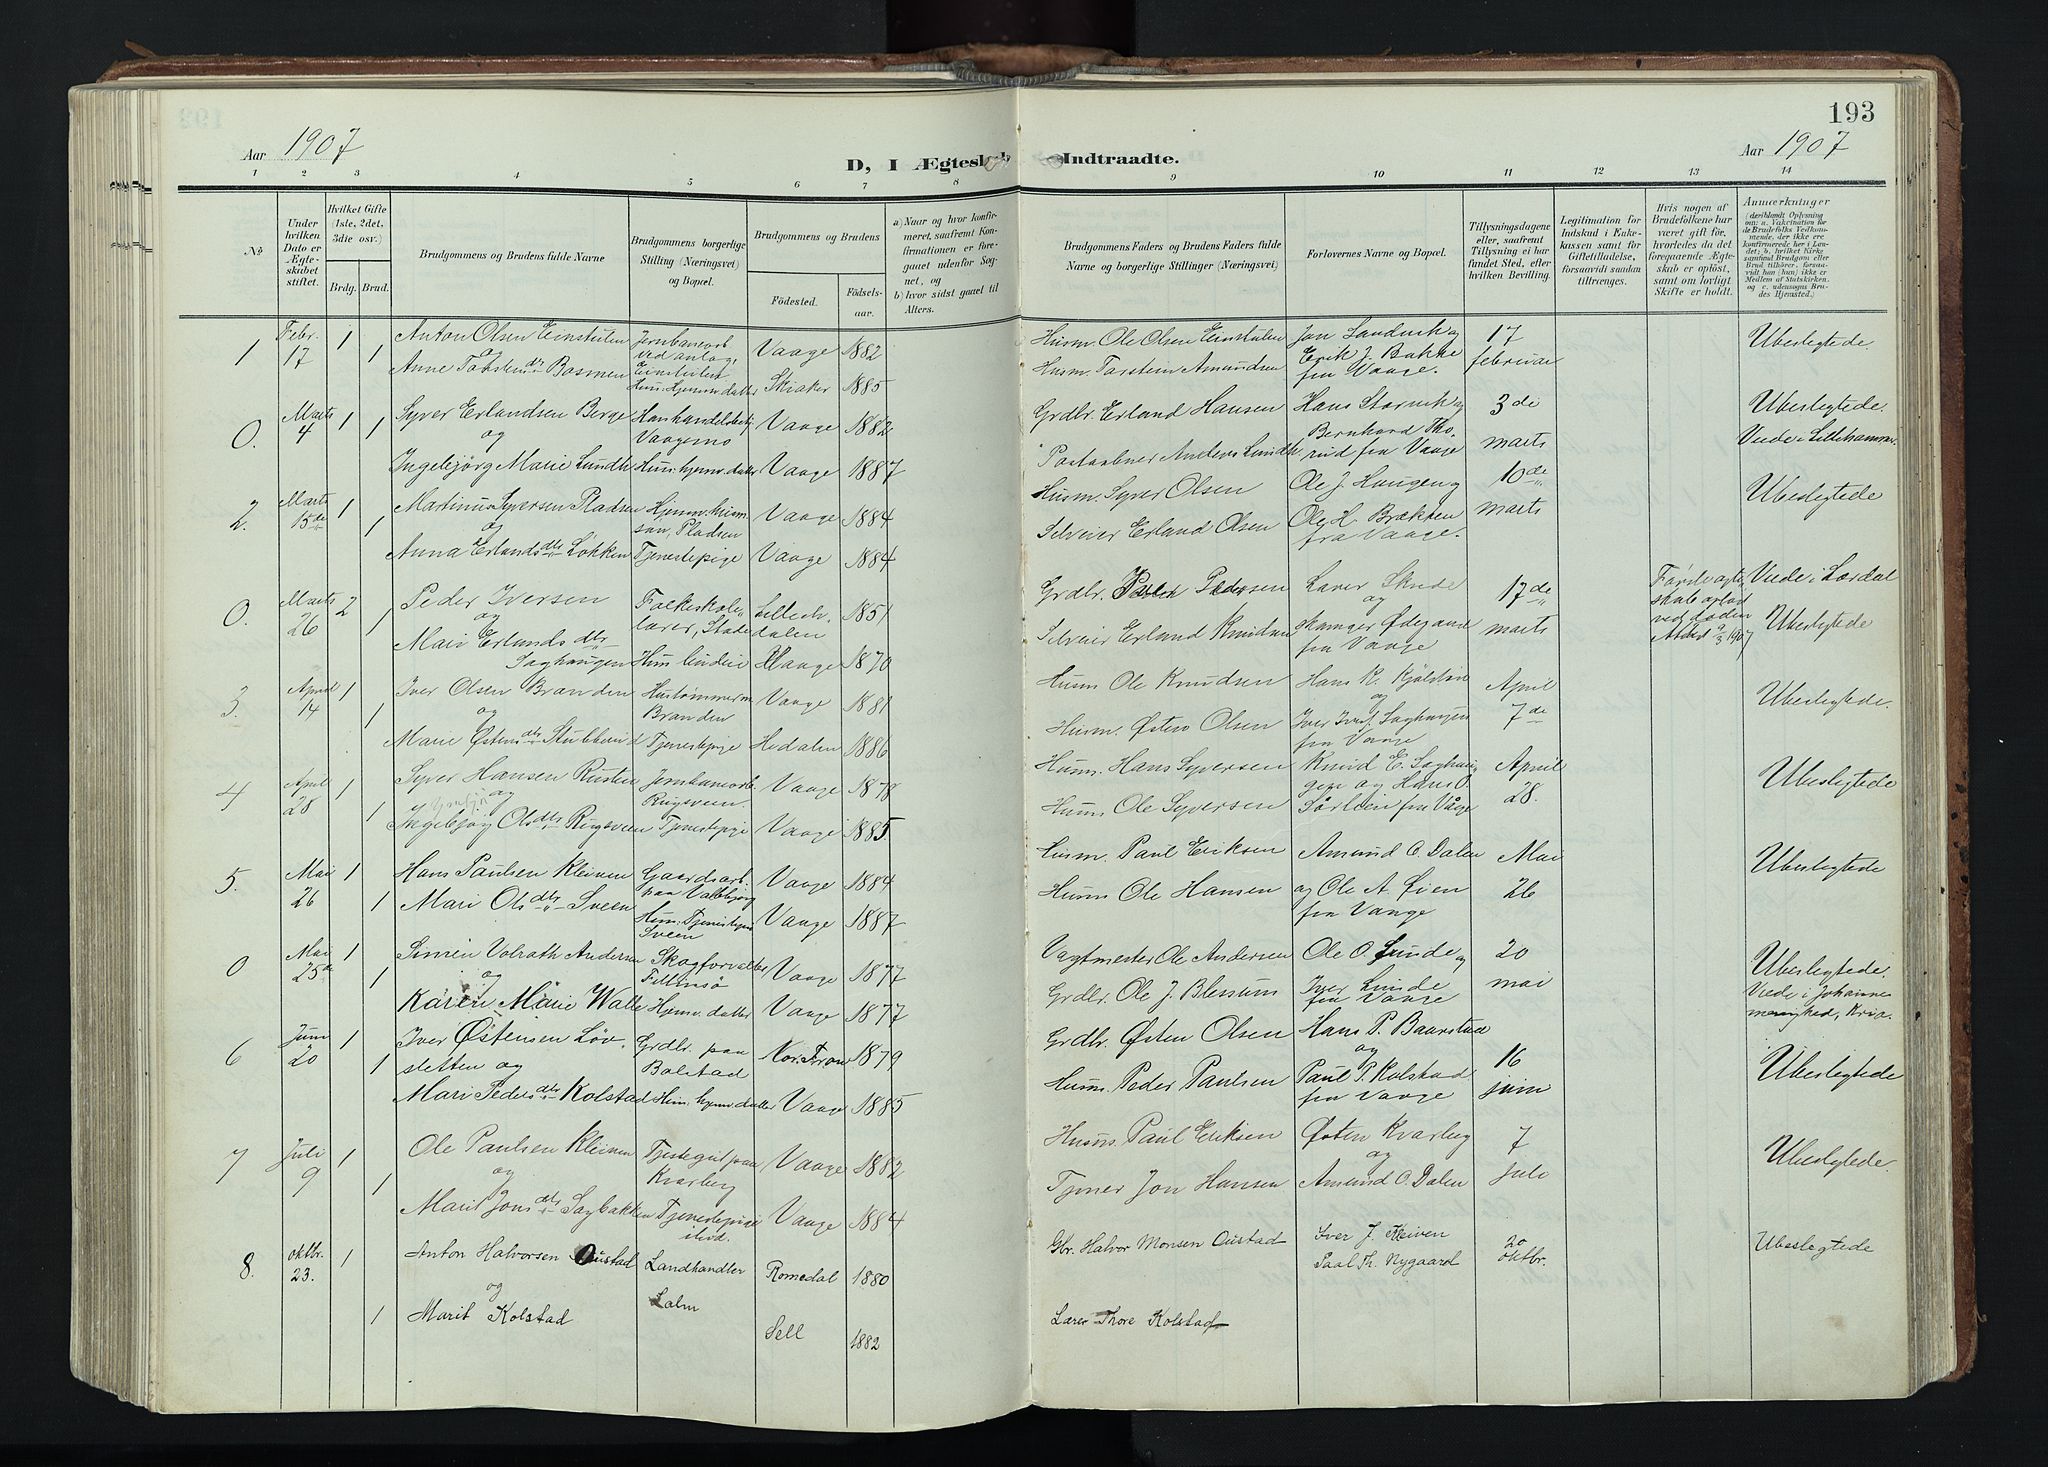 193
Aar 1907
D, I Ægteskab Indtraadte.
Aar 1907
1 2 3 4 5 6 7 8 9 10 11 12 13 14
No
Under hvilken Dato er Ægteskabet stiftet.
Hvilket Gifte (1ste, 2det, 3die osv.)
Brdg. Brud.
Brudgommens og Brudens fulde Navne
Brudgommens borgerlige Stilling (Næringsvei) og Bopæl.
Brudgommens og Brudens
Fødested.
Fødselsaar.
a) Naar og hvor konfirmeret, saafremt Konfirmationen er foregaaet udenfor Sognet, og
b) hvor sidst gaaet til Alters.
Brudgommens Faders og Brudens Faders fulde Navne og borgerlige Stillinger (Næringsvei)
Forlovernes Navne og Bopæl.
Tillysningsdagene eller, saafremt Tillysning ei har fundet Sted, efter hvilken Bevilling.
Legitimation for Indskud i Enkekassen samt for Giftetilladelse, forsaavidt saadan tiltrænges.
Hvis nogen af Brudefolkene har været gift før, hvorledes da det foregaaende Ægteskab er opløst, samt om lovligt Skifte er holdt.
Anmærkninger
1 Febr. 17 1 1 Anton Olsen Einstulen og Jernbanearb. ved anlag, Einstulen Vaage 1882 Husm. Ole Olsen Einstulen Jon Sandvik og 17 februar Ubeslegtede.
Anne Torstensdtr Bosmoen Hus. Hjemm. datter Skiaker 1885 Husm. Torstein Amundsen Erik J. Bakke fra Vaage.
0. Marts 4 1 1 Syver Erlandsen Berge og Vaagemo Vaage 1882 Grdbr. Erland Hansen Hans Storvik og 3de marts Ubeslegtede.
Ingebjørg Marie Lundh Hun: hjemv. datter Vaage 1887 Postaabner Anders Lundh Bernhard Thorud fra Vaage Viede i Lillehammer
2. Marts 15de 1 1 Martinus Syversen Pladsen og Pladsen Vaage 1884 Husm. Syver Olsen Ole J. Haugen og 10de marts Ubeslegtede
Anna Erlandsdtr Løkken Tjenestepige Vaage 1884 Selveier Erland Olsen Ole H. Brækken fra Vaage.
0. Marts 26 2 1 Peder Iversen og Folkeskolelærer, Stade 1851 Grdbr. Pedersen Lærer Skude og 17de marts Viede i Lordal
Mari Erlandsdtr Saghaugen Vaage 1870 Selveier Erland Knudsen Ødegaard fra Vaage Ubeslegtede
3. April 14 1 1 Iver Olsen Branden og Hustømmerm. Branden Vaage 1881 Husm. Ole Knudsen Hans K. og April 7de Ubeslegtede.
Marie Østensdtr Stubberud Tjenestepige Hedalen 1886 Husm. Østen Olsen Iver Saghaugen fra Vaage
4 April 28 1 1 Syver Hansen Rusten og Jernbanearb. Rugsveen. Vaage 1878 Husm. Hans Syversen Knud E. Saghaugen og Hans O. April 28. Ubeslegtede
Ingebjørg Olsdtr Rugsveen Tjenestepige Vaage 1885. Husm Ole Syversen fra Vaage
5. Mai 26 1 1 Hans Paulsen Kleiven Gaardsarb. paa Valbjørg Vaage 1884 Husm. Paul Eriksen Amund O. Dalen Mai 26 Ubeslegtede
Mari Olsdtr Sveen Hun: Tjenestepige Sveen Vaage 1887 Husm Ole Hansen og Ole A. Øien fra Vaage
0 Mai 25de 1 1 Simen Volrath Andersen og Skogforvalter Vaage 1877 Vagtmester Ole Andersen Ole O. Sunde og 20 mai Ubeslegtede.
Karen Marie Walle Hjemv. datter Vaage 1877 Grdbr. Ole J. Blessum Iver Sunde fra Vaage Viede i Johannes menighed, Kria.
6 Juni 20 1 1 Iver Østensen Løvsletten og Grdbr. paa Bolstad Nor. Fron 1879 Grdbr. Østen Olsen Hans P. Baarstad og 16 juni Ubeslegtede
Mari Pedersdtr Kolstad Hun: hjemv. datter Vaage 1885 Husm. Peder Paulsen Paul P. Kolstad fra Vaage
7 Juli 9 1 1 Ole Paulsen Kleiven og Tjestegut paa Kvarberg Vaage 1882 Husm. Paul Eriksen Østen Kvarberg og 7 Juli Ubeslegtede.
Marit Jonsdtr Sagbakken Tjenestepige ibid. Vaage 1884 Tjener Jon Hansen Amund O. Dalen
8. oktbr. 23. 1 1 Anton Halvorsen Oustad og Landhandler Lalm Romedal 1880 Gbr. Halvor Monsen Oustad Iver J. Kleiven 20 oktbr. Ubeslegtede
Marit Kolstad Sell 1882 Lærer Thore Kolstad Paal Th. Nygaard